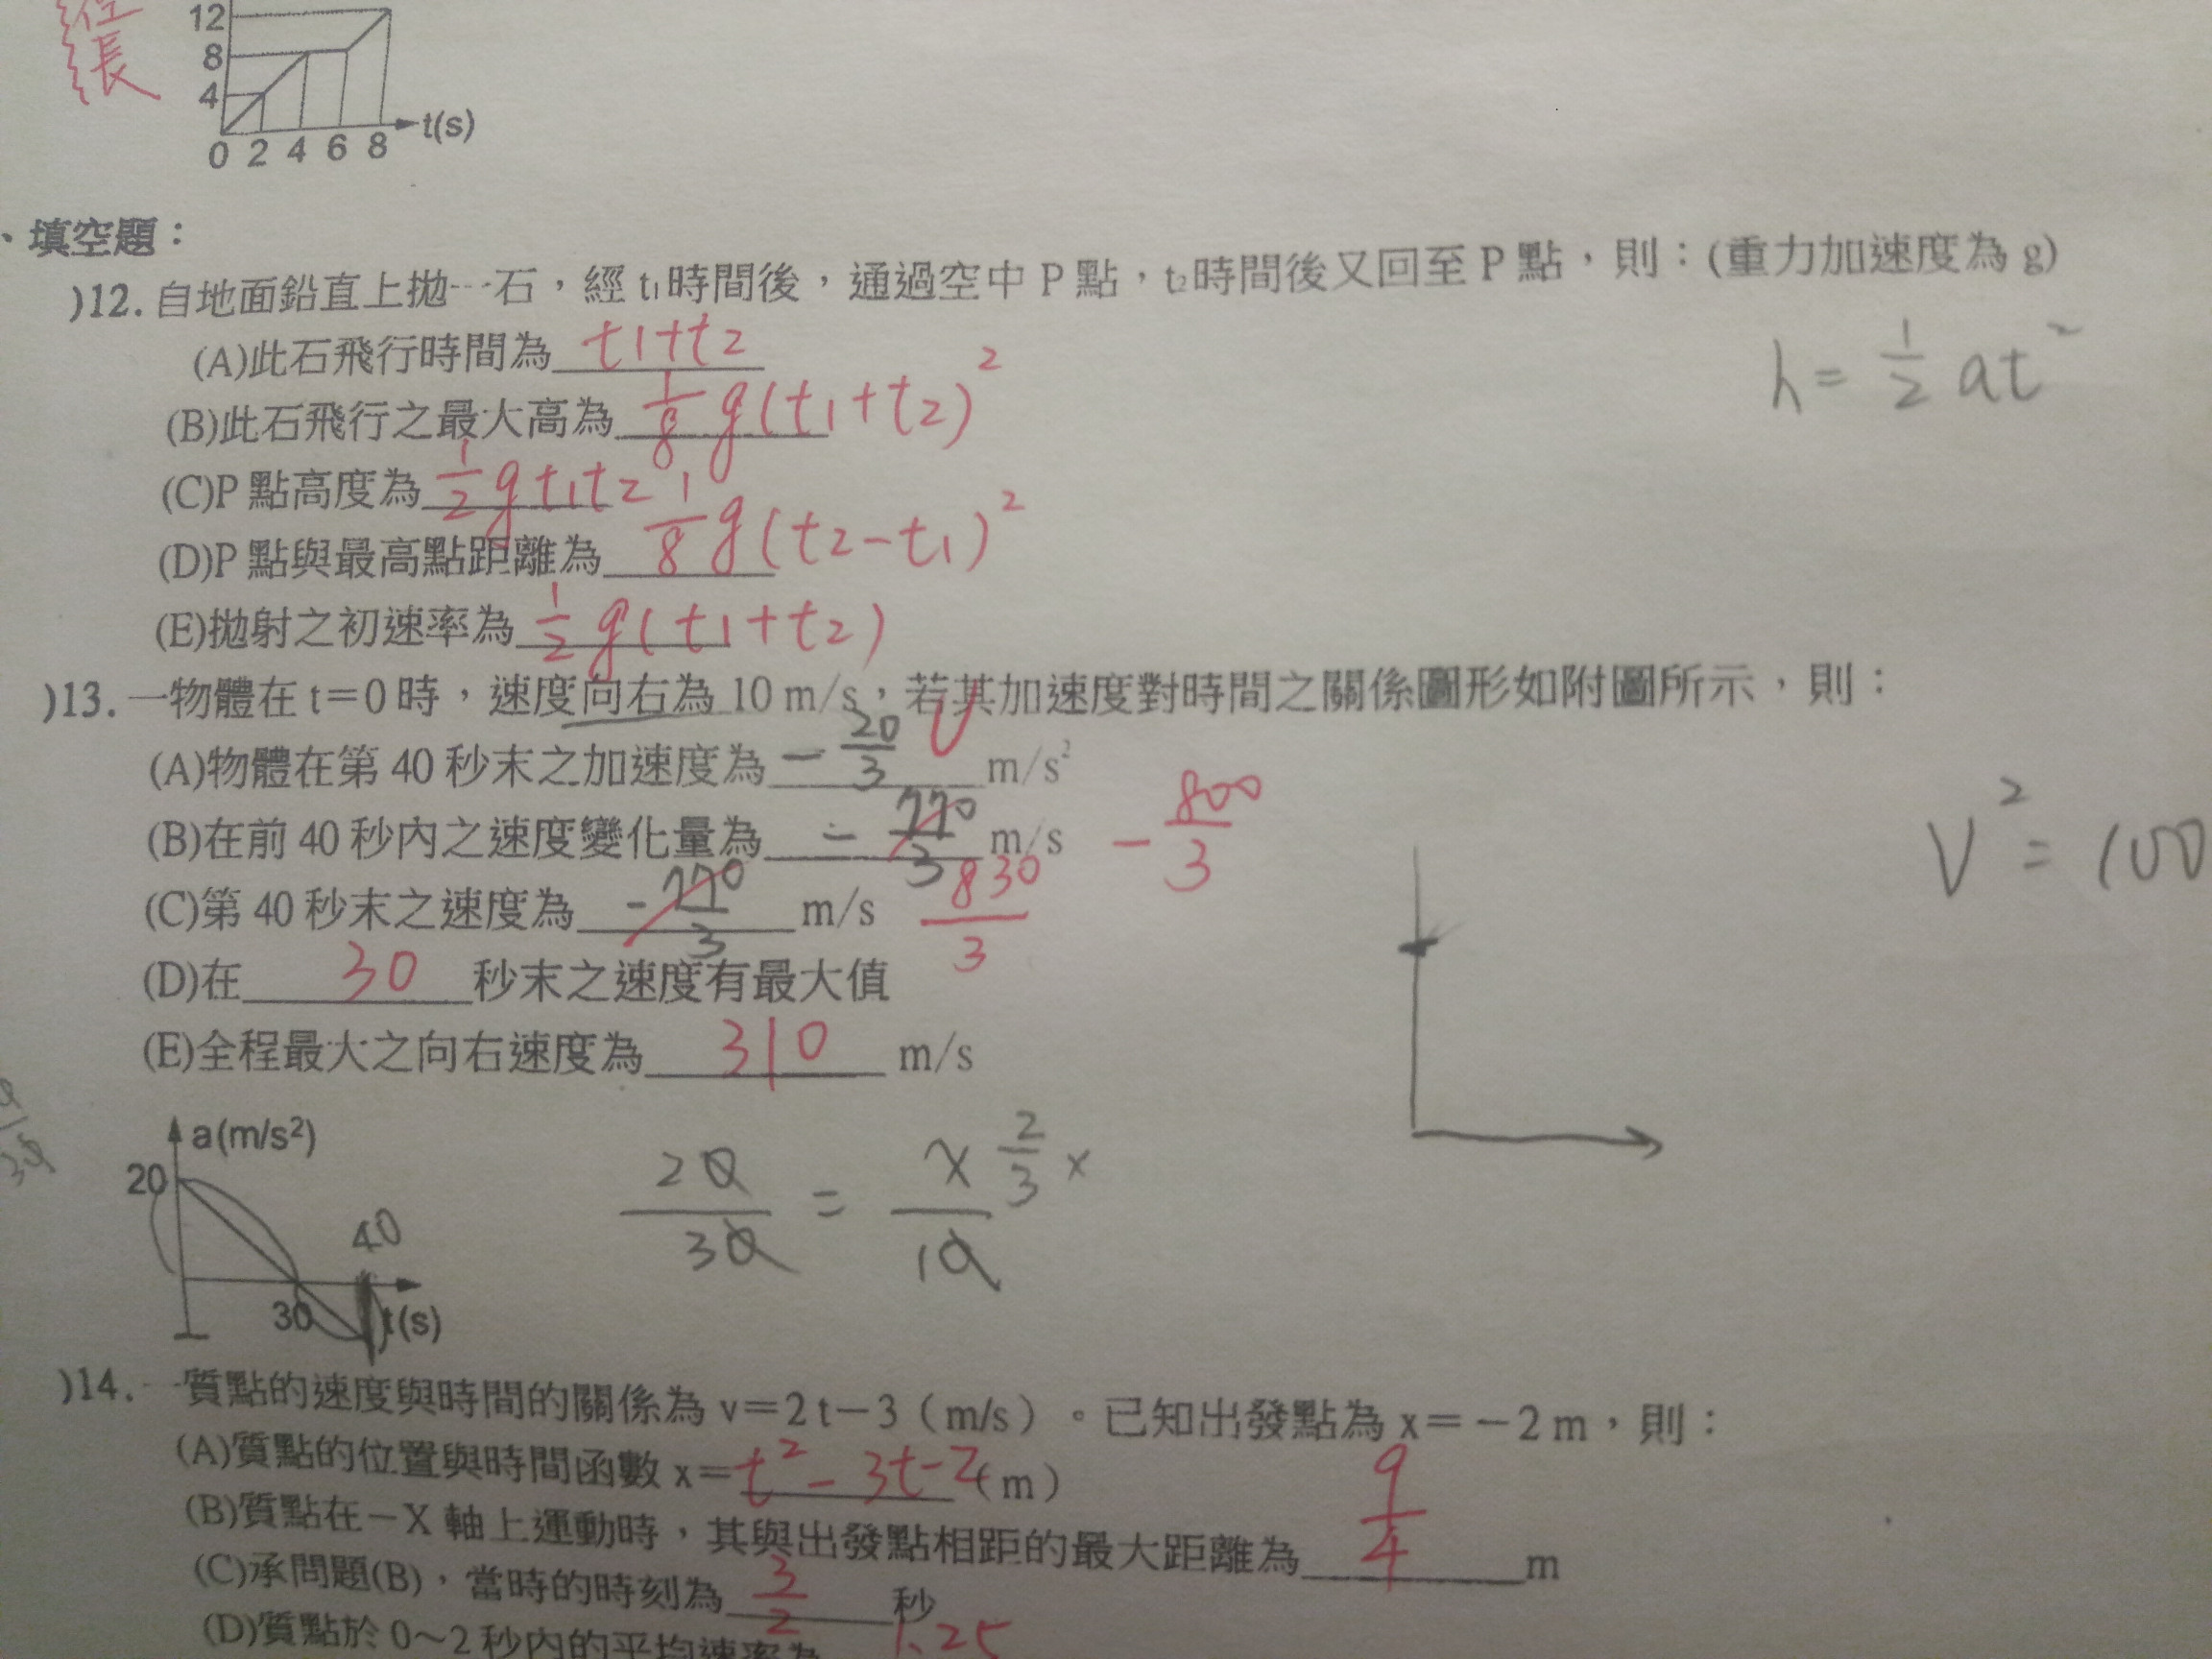 張
12
8
4
0 2 4 6 8 t(s)
、填空題：
)12. 自地面鉛直上拋一石，經 t₁時間後，通過空中 P 點，t₂時間後又回至 P 點，則：(重力加速度為 g)
(A)此石飛行時間為 t1+t2
h = 1/2 at²
(B)此石飛行之最大高為 1/8 g(t1+t2)²
(C)P 點高度為 1/2 g t1t2
(D)P 點與最高點距離為 1/8 g(t2-t1)²
(E)拋射之初速率為 1/2 g(t1+t2)
)13. 一物體在 t＝0 時，速度向右為 10 m/s，若其加速度對時間之關係圖形如附圖所示，則：
(A)物體在第 40 秒末之加速度為 - 20/3 m/s²
(B)在前 40 秒內之速度變化量為 - 770/3 m/s - 800/3
V² = 100
(C)第 40 秒末之速度為 - 770/3 m/s 830/3
(D)在 30 秒末之速度有最大值
(E)全程最大之向右速度為 310 m/s
a(m/s²)
20
40
30 t(s)
20/30 = x/10 2/3 x
)14. 一質點的速度與時間的關係為 v＝2 t－3（m/s）。已知出發點為 x＝－2 m，則：
(A)質點的位置與時間函數 x＝t²-3t-2(m）
(B)質點在－X 軸上運動時，其與出發點相距的最大距離為 9/4 m
(C)承問題(B)，當時的時刻為 3/2 秒
(D)質點於 0～2 秒內的平均速率為 1.25